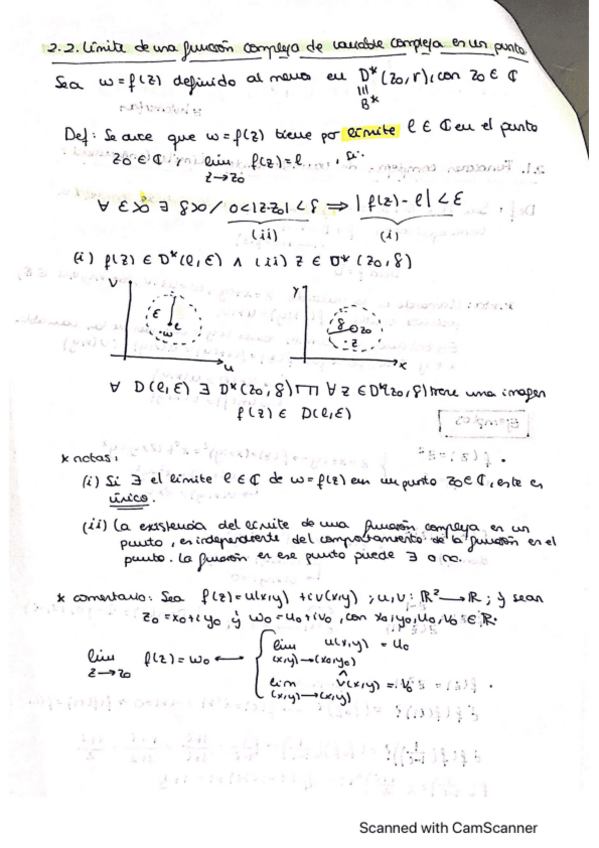 2.2. Límite de una función compleja de variable compleja en un punto
Sea w = f(z) definido al menos en D*(z0, r), con z0 ∈ ℂ
≡
B*
Def: Se dice que w = f(z) tiene por límite l ∈ ℂ en el punto
z0 ∈ ℂ, lim f(z) = l, si:
z→z0
∀ ε>0 ∃ δ>0 / 0<|z-z0|<δ ⇒ |f(z) - l| < ε
(ii) (i)
(i) f(z) ∈ D*(l, ε) ∧ (ii) z ∈ D*(z0, δ)
V Y
ε l w δ z0 z
u x
∀ D(l, ε) ∃ D*(z0, δ) ∀ z ∈ D*(z0, δ) tiene una imagen
f(z) ∈ D(l, ε)
* notas:
(i) Si ∃ el límite l ∈ ℂ de w = f(z) en un punto z0 ∈ ℂ, este es
único.
(ii) La existencia del límite de una función compleja en un
punto, es independiente del comportamiento de la función en el
punto. La función en ese punto puede ∃ o no.
* comentario: Sea f(z) = u(x,y) + i v(x,y) ; u, v: ℝ² → ℝ ; y sean
z0 = x0 + i y0, y w0 = u0 + i v0, con x0, y0, u0, v0 ∈ ℝ.
lim u(x,y) = u0
(x,y)→(x0,y0)
lim f(z) = w0 ↔
z→z0
^
lim v(x,y) = v0
(x,y)→(x,y)
Scanned with CamScanner